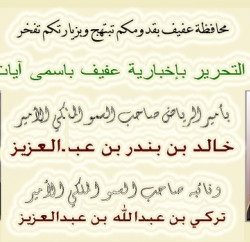 محافظة عفيف بقدومكم تبتهج وبزيارتكم تفخر
التحرير بإخبارية عفيف باسمى آيات
بأمير الرياض صاحب السمو الملكي الأمير
خالد بن بندر بن عبد العزيز
ونائبه صاحب السمو الملكي الأمير
تركي بن عبدالله بن عبدالعزيز